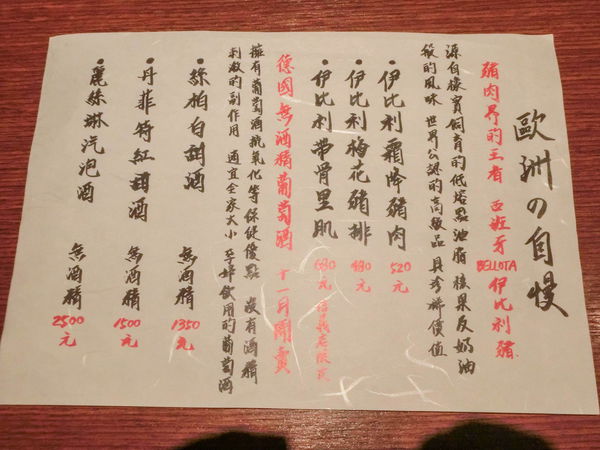 歐洲の自慢
豬肉界的王者 西班牙BELLOTA伊比利豬
源自橡實飼育的低熔點油脂 核果及奶油
般的風味 世界公認的高級品 具珍稀價值
•伊比利霜降豬肉 520元
•伊比利梅花豬排 480元
•伊比利帶骨里肌 680元
德國無酒精葡萄酒 十一月開賣
擁有葡萄酒抗氧化等保健優點 沒有酒精
刺激的副作用 適宜全家大小 享用的葡萄酒
•絲柏白甜酒 無酒精 1350元
•丹菲特紅甜酒 無酒精 1500元
•麗絲琳汽泡酒 無酒精 2500元